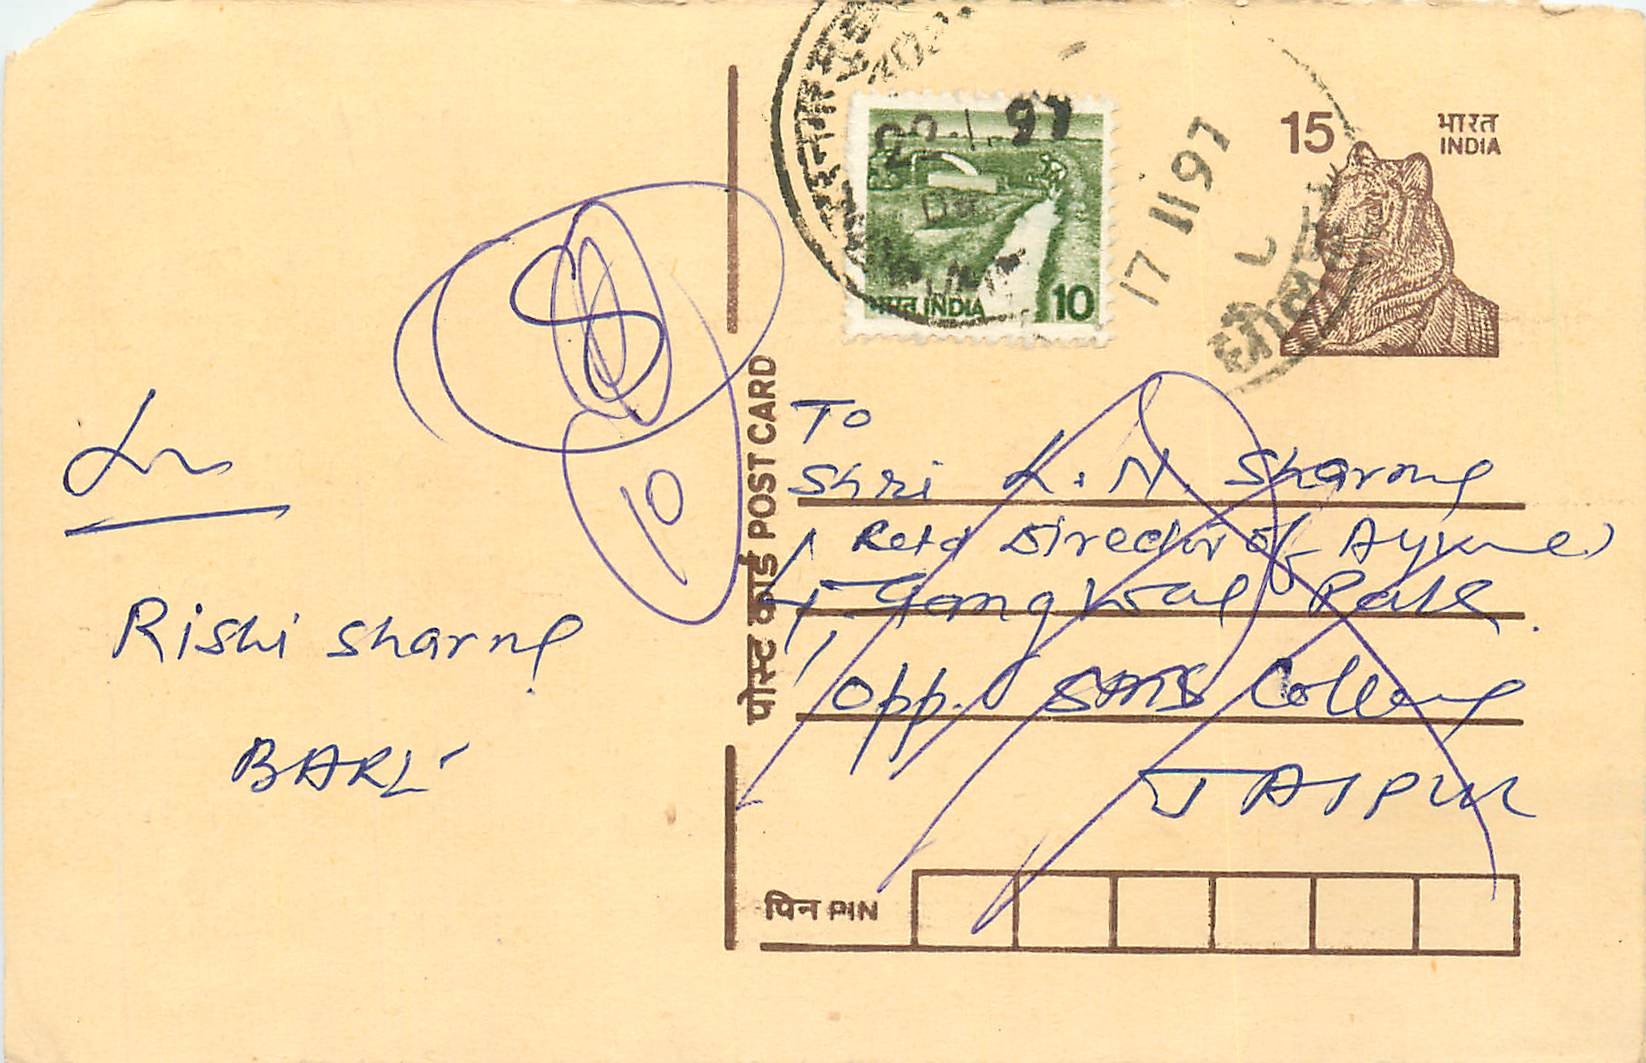 15
भारत
INDIA
22.1.97
भारत INDIA 10
17 11 97
पोस्ट कार्ड POST CARD
8
10
Rishi Sharma
BARI
To
Shri K. N. Sharma
Retd Director of
Park
Opp. College
JAIPUR
पिन PIN